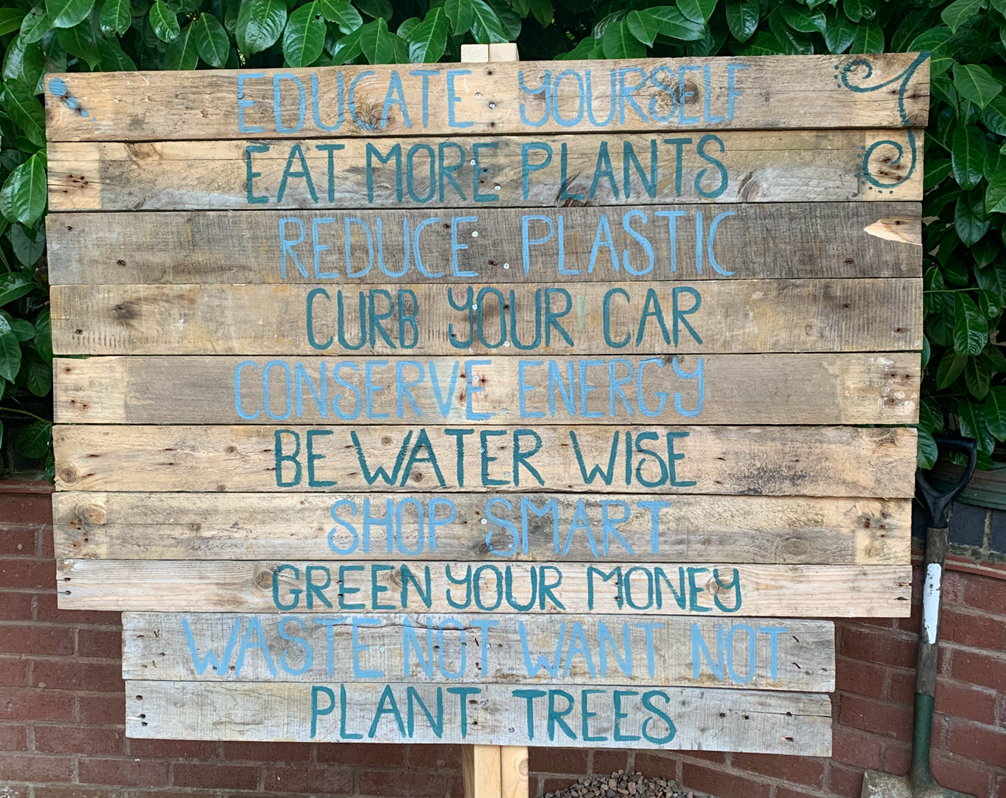 EDUCATE YOURSELF
EAT MORE PLANTS
REDUCE PLASTIC
CURB YOUR CAR
CONSERVE ENERGY
BE WATER WISE
SHOP SMART
GREEN YOUR MONEY
WASTE NOT WANT NOT
PLANT TREES